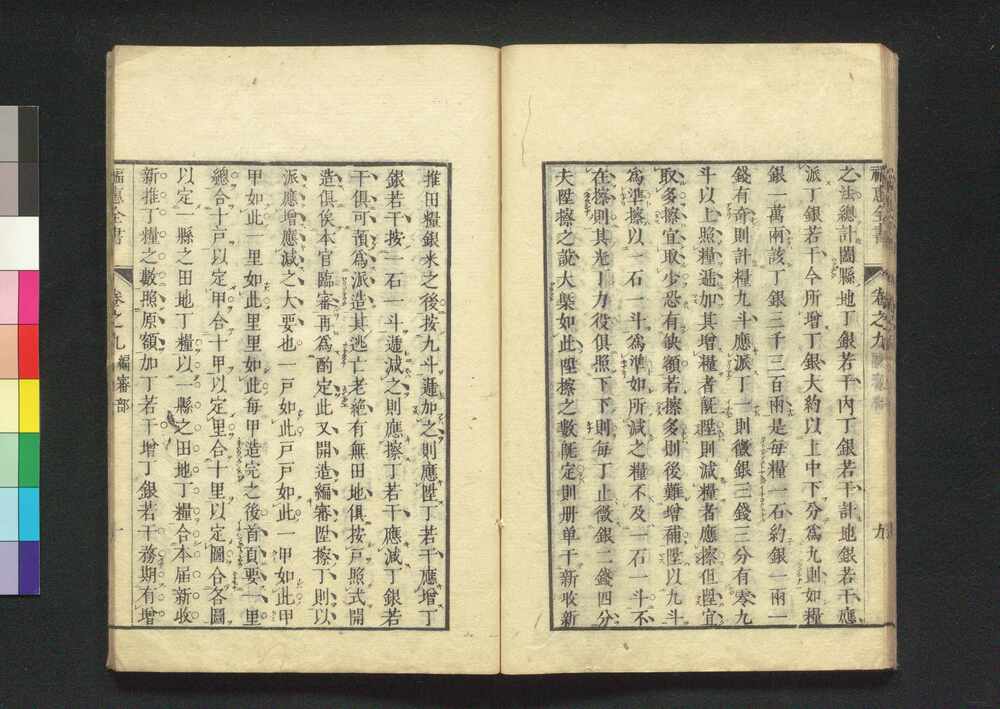 福惠全書 卷之九 九
之法總計闔縣地丁銀若干內丁銀若干計地銀若干應
派丁銀若干今所增丁銀大約以上中下分爲九則如糧
銀一萬兩該丁銀三千三百兩是每糧一石約銀一兩一
錢有奇則計糧九斗應派丁一則徵銀三錢三分有零九
斗以上照糧遞加其增糧者旣陞則減糧者應擦但陞宜
取多擦宜取少恐有缺額若擦多則後難增補陞以九斗
爲準擦以一石一斗爲準如所減之糧不及一石一斗不
在擦則其光丁力役俱照下下則每丁止徵銀二錢四分
夫陞擦之說大槩如此陞擦之數旣定則册单干新收新
推田糧銀米之後按九斗遞加之則應陞丁若干應增丁
銀若干按一石一斗遞減之則應擦丁若干應減丁銀若
干俱可預爲派造其逃亡老絶有無田地俱按戸照式開
造俱俟本官臨審再爲酌定此又開造編審陞擦丁則以
派應增應減之大要也一戸如此戸戸如此一甲如此甲
甲如此一里如此里里如此每甲造完之後首頁要一里
總合十戸以定甲合十甲以定里合十里以定圖合各圖
以定一縣之田地丁糧以一縣之田地丁糧合本届新收
新推丁糧之數照原額加丁若干增丁銀若干務期有增
福惠全書 卷之九 編審部 一